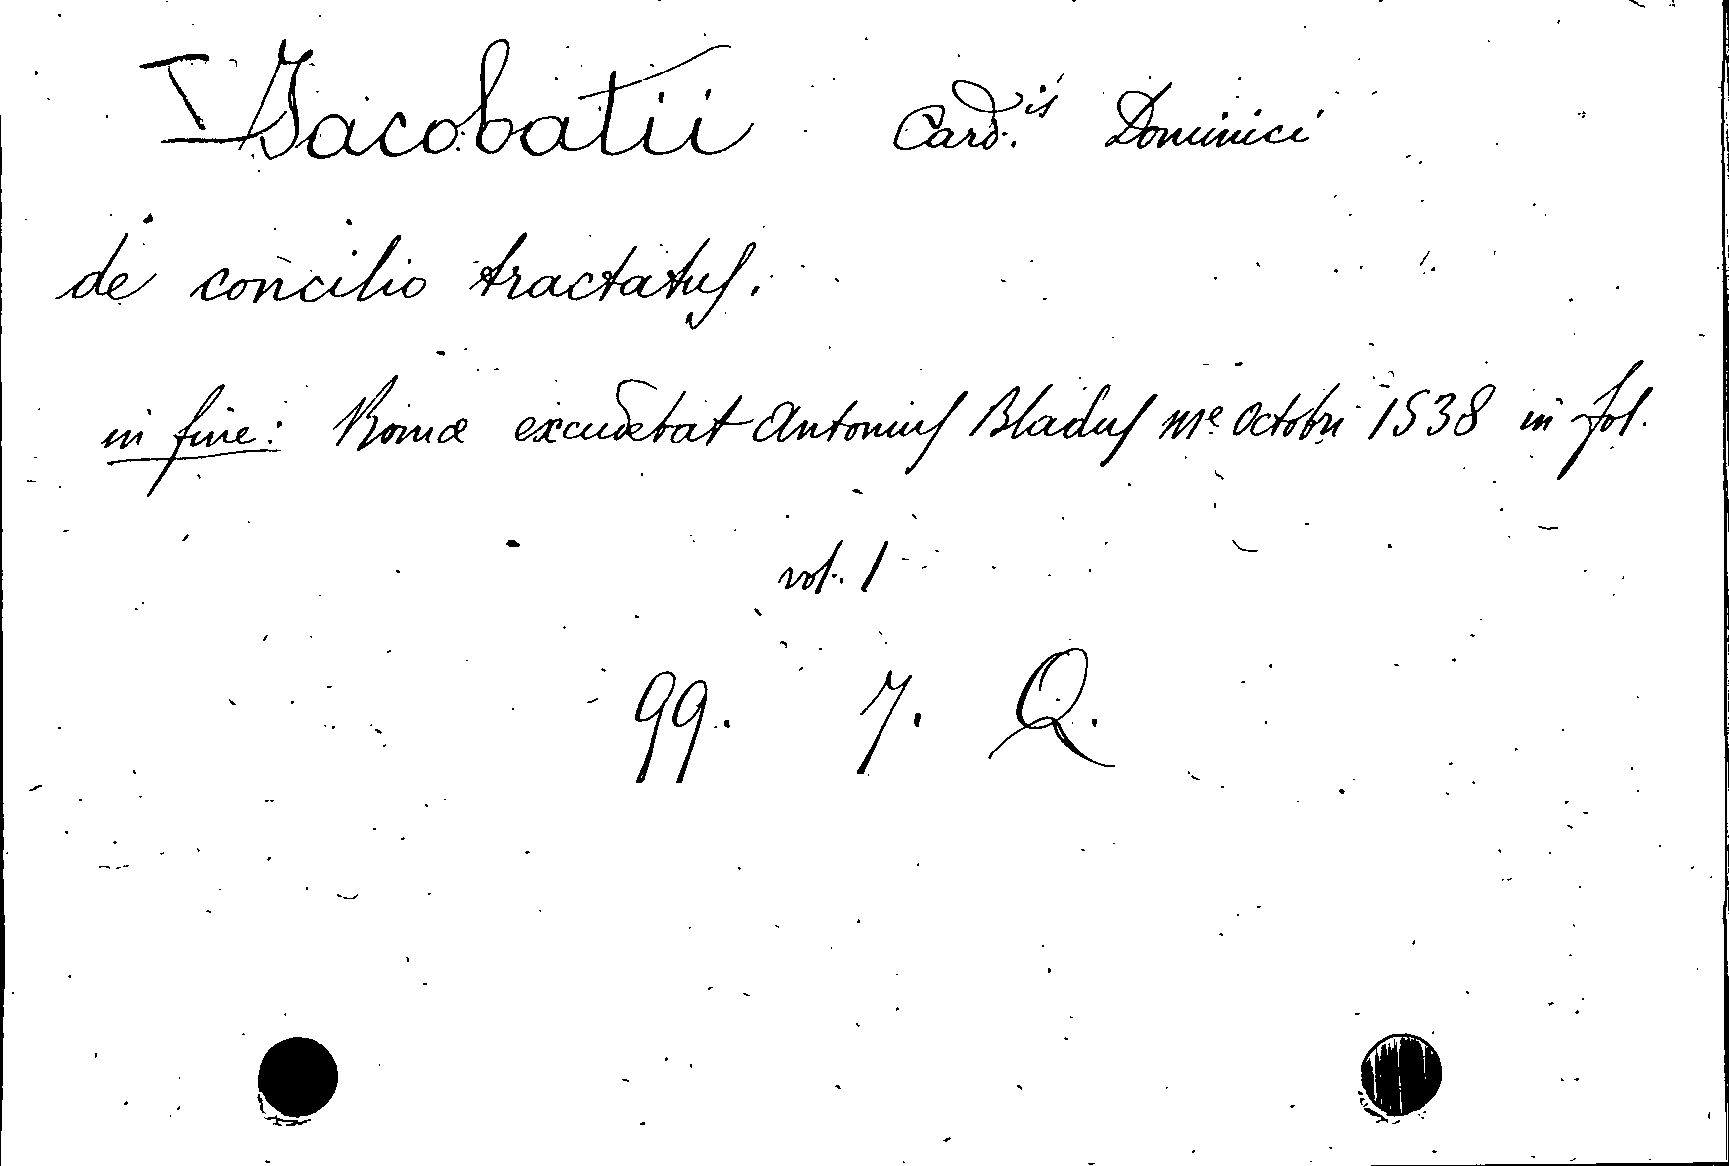 I Jacobatii Card.is Dominici
de concilio tractatus.
in fine: Romæ excudebat Antonius Bladus me. Octobri 1538 in fol.
vol. 1
99. 7. Q.